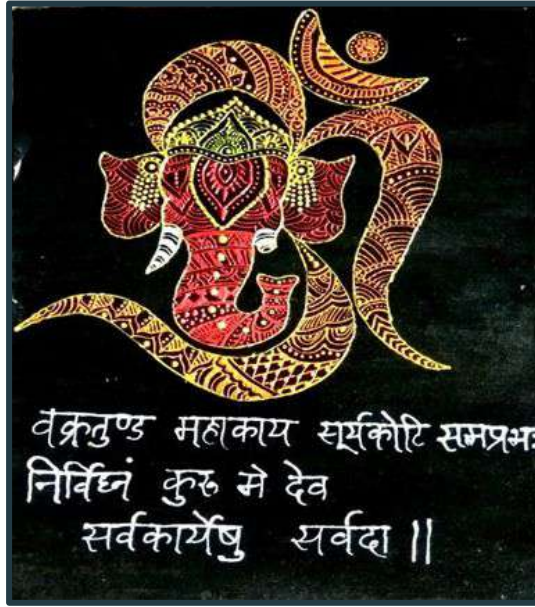 वक्रतुण्ड महाकाय सूर्यकोटि समप्रभः
निर्विघ्नं कुरु मे देव
सर्वकार्येषु सर्वदा ||